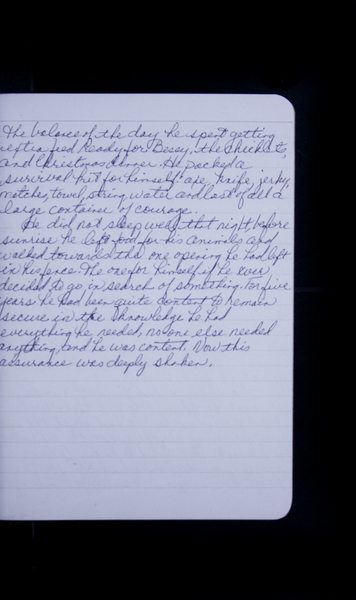 The balance of the day he spent getting
extra feed ready for Bessy, the chickets,
and Christmas dinner. He packed a
survival kit for himself: axe, knife, jerky,
matches, towel, string, water and last of all a
large container of courage.
He did not sleep well that night, before
sunrise he left food for his animals and
walked towards the one opening he had left
in his fence. The one for himself if he ever
decided to go in search of something. For five
years he had been quite content to remain
secure in the knowledge he had
everything he needed, no one else needed
anything, and he was content. Now this
assurance was deeply shaken.